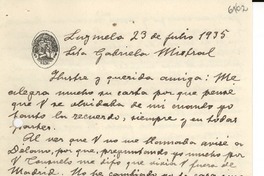 6402
Luzmela 23 de julio 1935
Srta Gabriela Mistral
Ilustre y querida amiga: Me
alegra mucho su carta por que pensé
que V se olvidaba de mi cuando yo
tanto la recuerdo, siempre y en todas
partes.
Al ver que V no me llamaba avisé a
Délano, por que, preguntando yo mucho por
V Consuelo me dijo que vivía V fuera de
Madrid. No ha cambiado